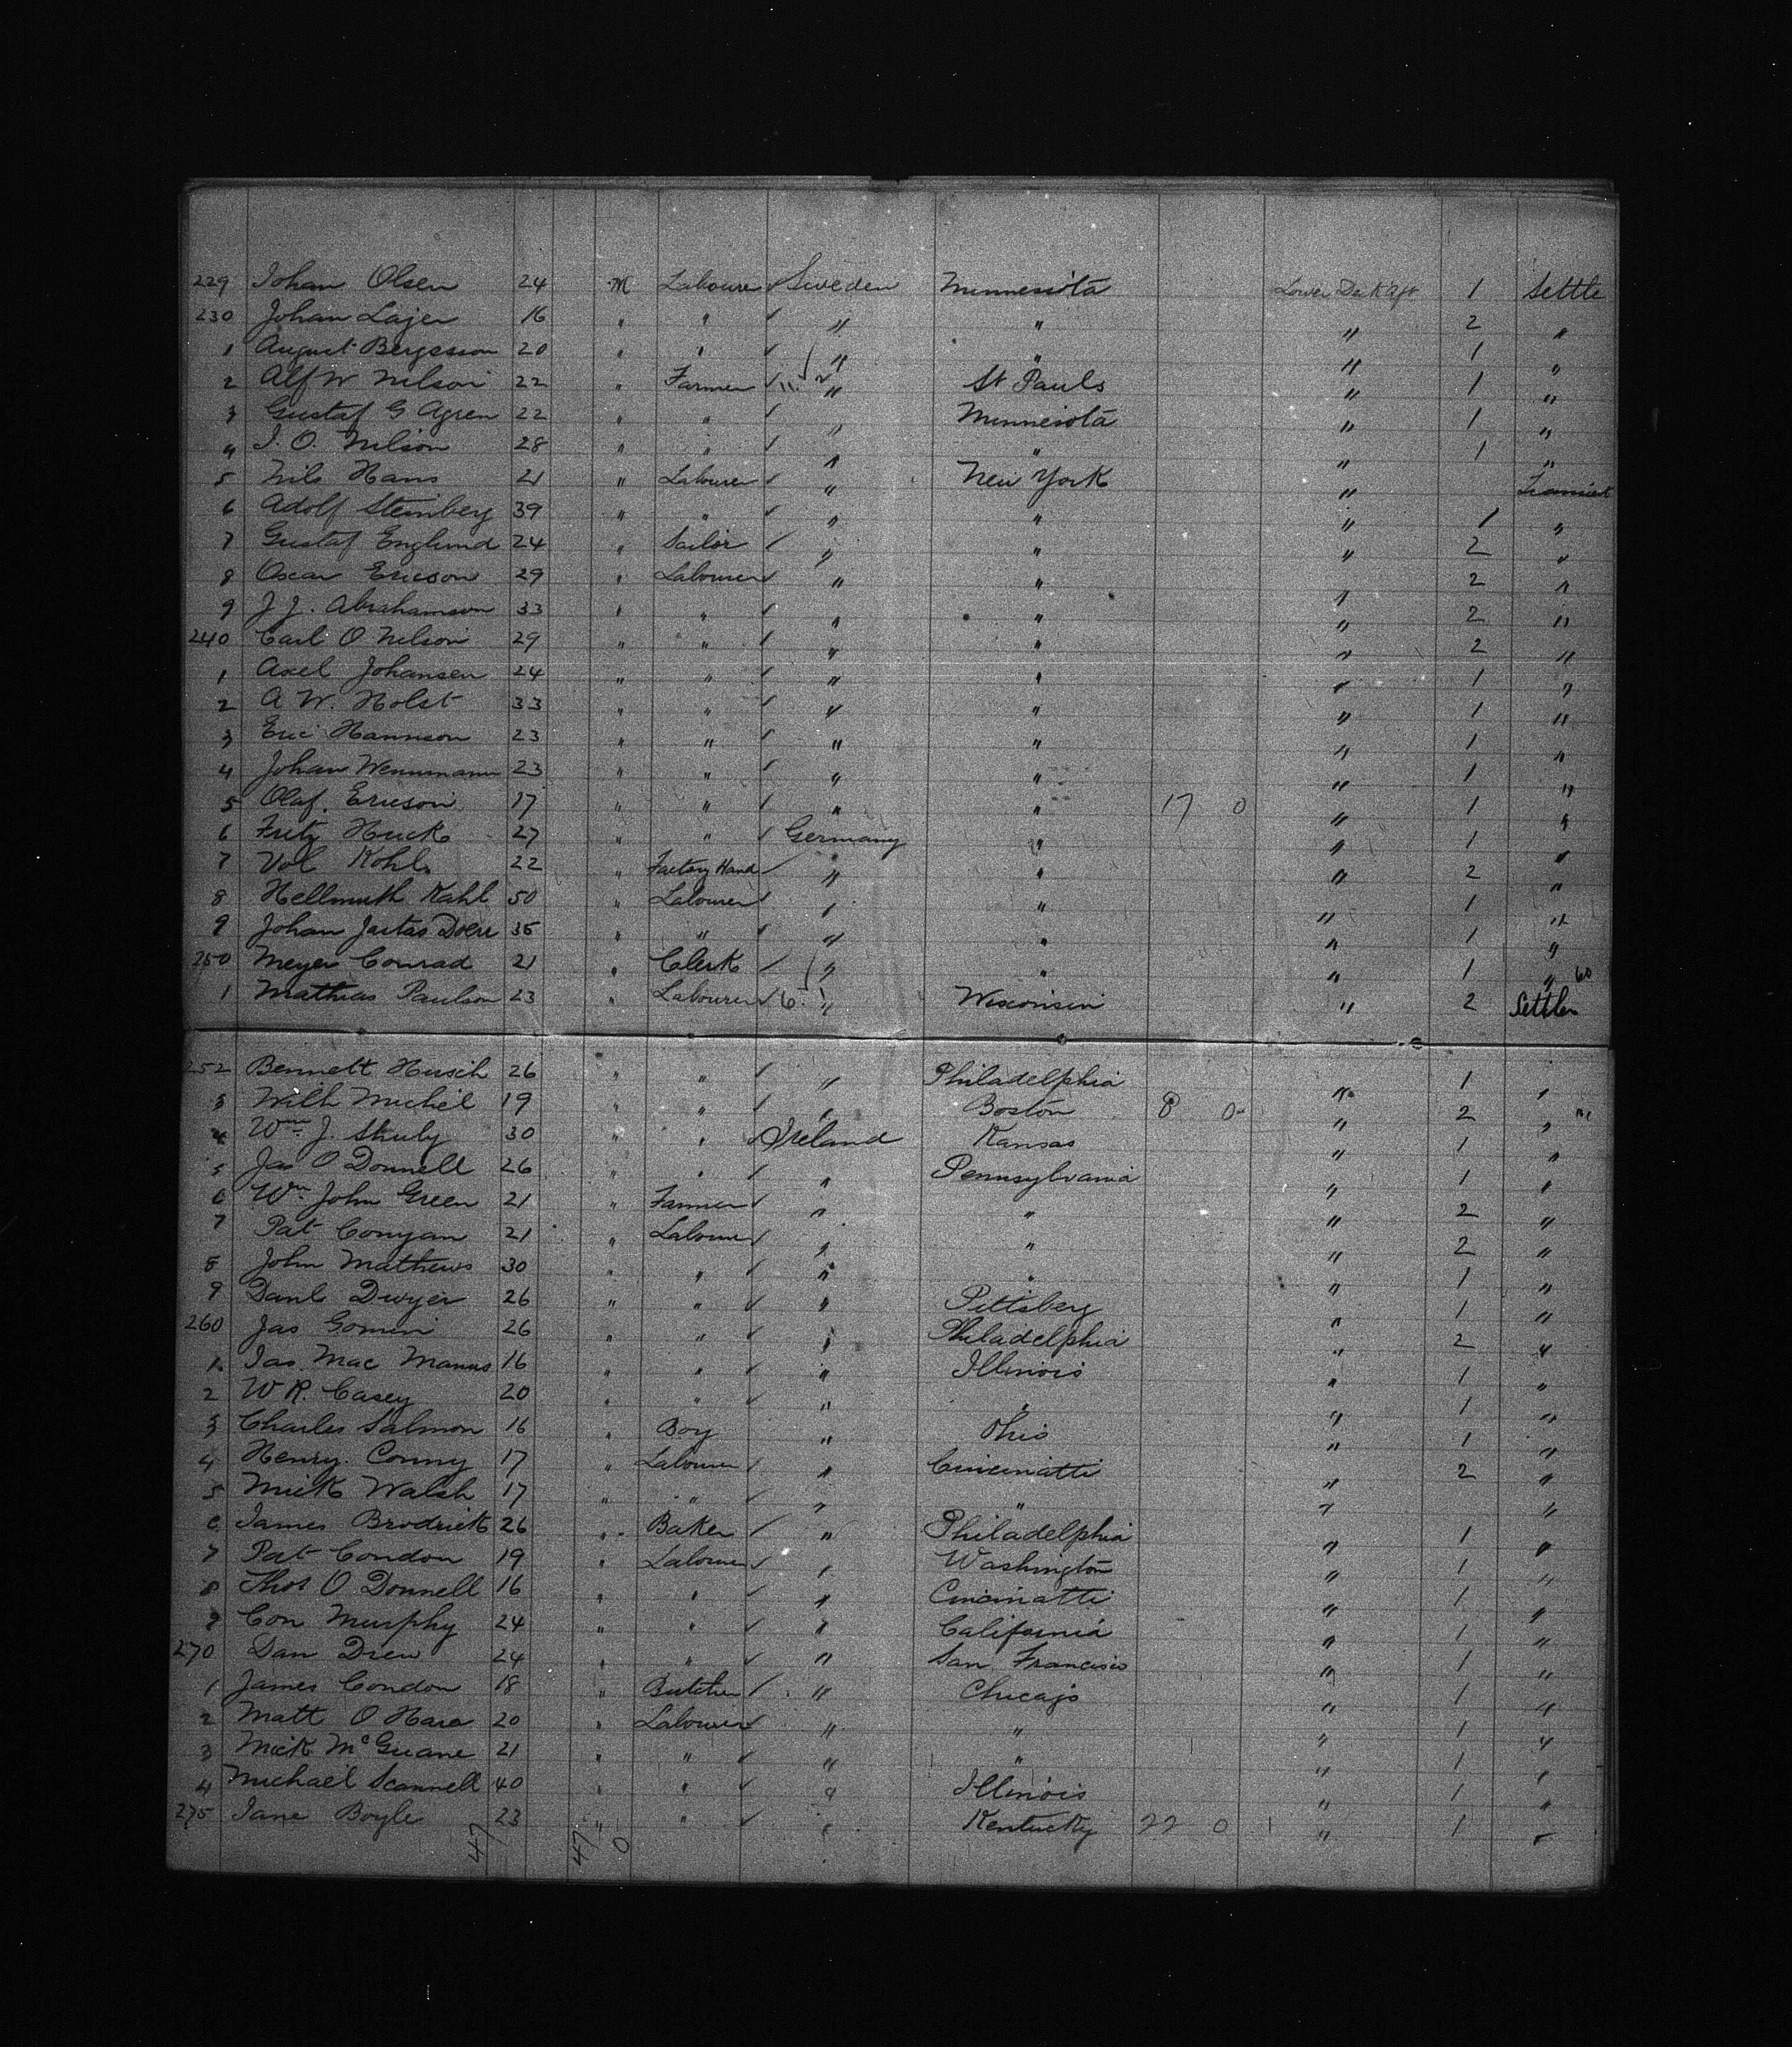 229 Johan Olsen 24 M Labourer Sweden Minnesota Lower Deck Aft 1 Settle
230 Johan Lajer 16 " " " " " 2 "
1 August Bergsson 20 " " " " " 1 "
2 Alf W Nelson 22 " Farmer " St Pauls " 1 "
3 Gustaf G Agren 22 " " " Minnesota " 1 "
4 J. O. Nelson 28 " " " " " 1 "
5 Nils Hans 21 " Labourer " New York " Transient
6 Adolf Steinberg 39 " " " " " 1 "
7 Gustaf Englund 24 " Sailor " " " 2 "
8 Oscar Ericson 29 " Labourer " " " 2 "
9 J J. Abrahamson 33 " " " " " 2 "
240 Carl O Nelson 29 " " " " " 2 "
1 Axel Johansen 24 " " " " " 1 "
2 A W. Holst 33 " " " " " 1 "
3 Eric Hannson 23 " " " " " 1 "
4 Johan Wennmann 23 " " " " " 1 "
5 Olaf. Ericson 17 " " " " 17 0 " 1 "
6 Fritz Huck 27 " " Germany " " 1 "
7 Kohl 22 " Factory Hand " " " 2 "
8 Hellmuth Kahl 50 " Labourer " " " 1 "
9 Johan 35 " " " " " 1 "
250 Meyer Conrad 21 " Clerk " " " 1 " 60
1 Mathias Paulson 23 " Labourer 6 " Wisconsin " 2 Settler
252 Bennett Husch 26 " " " Philadelphia " 1 "
3 Wilh Michel 19 " " " Boston 8 0 " 2 "
4 Wm J. Shuly 30 " " Ireland Kansas " 1 "
5 Jas O Donnell 26 " " " Pennsylvania " 1 "
6 Wm John Green 21 " Farmer " " " 2 "
7 Pat Conyan 21 " Labourer " " " 2 "
8 John Mathews 30 " " " " " 1 "
9 Danl Dwyer 26 " " " Pittsberg " 1 "
260 Jas Gomin 26 " " " Philadelphia " 2 "
1 Jas. Mac Manus 16 " " " Illinois " 1 "
2 W R. Casey 20 " " " " " 1 "
3 Charles Salmon 16 " Boy " Ohio " 1 "
4 Henry. Conny 17 " Labourer " Cincinatti " 2 "
5 Mick Walsh 17 " " " " " "
6 James Brodrick 26 " Baker " Philadelphia " 1 "
7 Pat Condon 19 " Labourer " Washington " 1 "
8 Thos O Donnell 16 " " " Cincinatti " 1 "
9 Con Murphy 24 " " " California " 1 "
270 Dan Drew 24 " " " San Francisco " 1 "
1 James Condon 18 " Butcher " Chicago " 1 "
2 Matt O Hara 20 " Labourer " " " 1 "
3 Mick McGuane 21 " " " " " 1 "
4 Michael Scannell 40 " " " Illinois " 1 "
275 Jane Boyle 23 " " " Kentucky 22 0 " 1 "
47 47 0